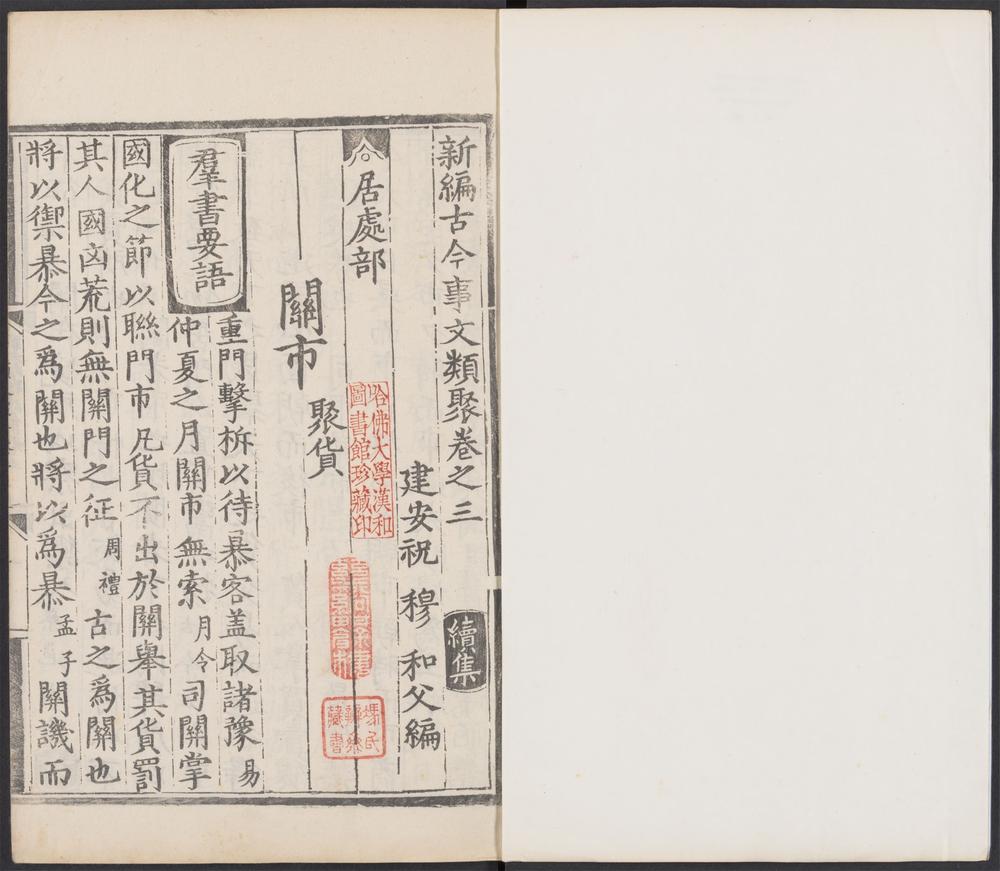 新編古今事文類聚卷之三 續集
建安祝 穆 和父編
居處部
關市 聚貨
羣書要語
重門擊柝以待暴客盖取諸豫易
仲夏之月關市無索月令司關掌
國化之節以聯門市凡貨不出於關舉其貨罰
其人國凶荒則無關門之征周禮古之為關也
將以禦暴今之為關也將以為暴孟子關譏而
哈佛大學漢和
圖書館珍藏印
馮氏
辨齋
藏書